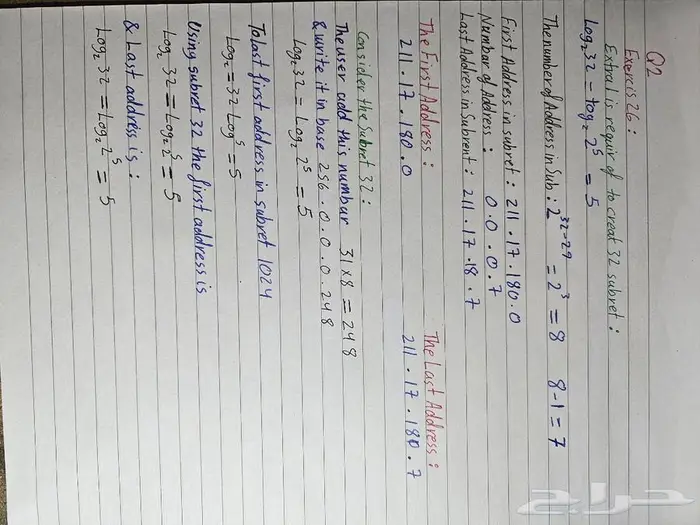 Q2
Exercis 26:
Extral is requir of to creat 32 subret:
Log₂ 32 = log₂ 2⁵ = 5
The number of Address in Sub: 2³²⁻²⁹ = 2³ = 8 8-1 = 7
First Address in subret: 211.17.180.0
Number of Address: 0.0.0.7
Last Address in Subrent: 211.17.18.7
The First Address: The Last Address:
211.17.180.0 211.17.180.7
Consider the Subret 32:
The user add this number 31 x 8 = 248
& write it in base 256.0.0.0.248
Log₂ 32 = Log₂ 2⁵ = 5
To last first address in subret 1024
Log₂ = 32 Log⁵ = 5
Using subret 32 the first address is
Log₂ 32 = Log₂ 2⁵ = 5
& Last address is:
Log₂ 32 = Log₂ 2⁵ = 5
حراج